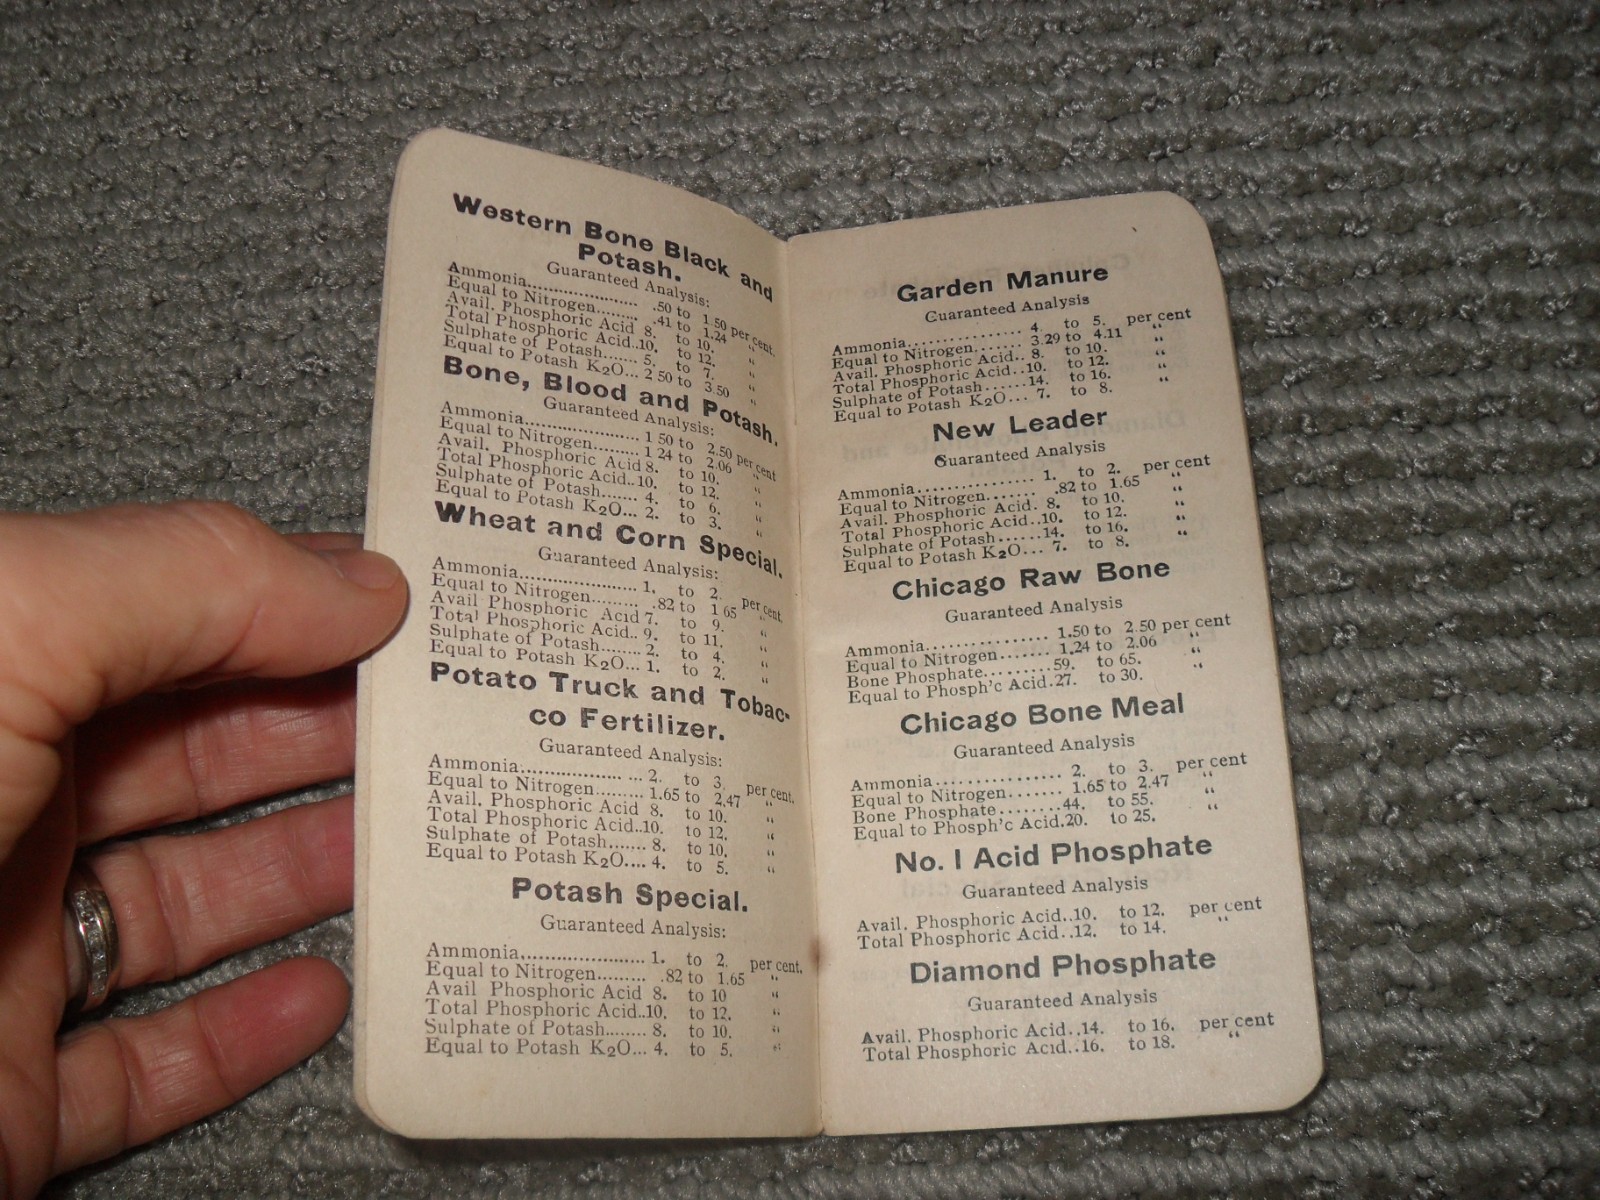 Western Bone Black and
Potash.
Guaranteed Analysis:
Ammonia..................... .50 to 1 50 per cent.
Equal to Nitrogen......... .41 to 1.24 "
Avail. Phosphoric Acid 8. to 10. "
Total Phosphoric Acid..10. to 12. "
Sulphate of Potash....... 5. to 7. "
Equal to Potash K2O... 2 50 to 3 50 "
Bone, Blood and Potash.
Guaranteed Analysis:
Ammonia..................... 1 50 to 2.50 per cent
Equal to Nitrogen.......... 1 24 to 2.06 "
Avail. Phosphoric Acid 8. to 10. "
Total Phosphoric Acid..10. to 12. "
Sulphate of Potash....... 4. to 6. "
Equal to Potash K2O... 2. to 3. "
Wheat and Corn Special.
Guaranteed Analysis:
Ammonia..................... 1. to 2. per cent.
Equal to Nitrogen......... .82 to 1 65 "
Avail Phosphoric Acid 7. to 9. "
Total Phosphoric Acid.. 9. to 11. "
Sulphate of Potash....... 2. to 4. "
Equal to Potash K2O... 1. to 2. "
Potato Truck and Tobac-
co Fertilizer.
Guaranteed Analysis:
Ammonia..................... 2. to 3. per cent.
Equal to Nitrogen......... 1.65 to 2.47 "
Avail. Phosphoric Acid 8. to 10. "
Total Phosphoric Acid..10. to 12. "
Sulphate of Potash....... 8. to 10. "
Equal to Potash K2O.... 4. to 5. "
Potash Special.
Guaranteed Analysis:
Ammonia...................... 1. to 2. per cent.
Equal to Nitrogen......... .82 to 1.65 "
Avail Phosphoric Acid 8. to 10 "
Total Phosphoric Acid..10. to 12. "
Sulphate of Potash........ 8. to 10. "
Equal to Potash K2O... 4. to 5. "
Garden Manure
Guaranteed Analysis
Ammonia................ 4. to 5. per cent
Equal to Nitrogen....... 3.29 to 4.11 "
Avail. Phosphoric Acid.. 8. to 10. "
Total Phosphoric Acid..10. to 12. "
Sulphate of Potash......14. to 16. "
Equal to Potash K2O... 7. to 8.
New Leader
Guaranteed Analysis
Ammonia................ 1. to 2. per cent
Equal to Nitrogen....... .82 to 1.65 "
Avail. Phosphoric Acid. 8. to 10. "
Total Phosphoric Acid..10. to 12. "
Sulphate of Potash......14. to 16. "
Equal to Potash K2O... 7. to 8.
Chicago Raw Bone
Guaranteed Analysis
Ammonia................ 1.50 to 2.50 per cent
Equal to Nitrogen....... 1.24 to 2.06 "
Bone Phosphate........59. to 65. "
Equal to Phosph'c Acid.27. to 30.
Chicago Bone Meal
Guaranteed Analysis
Ammonia................ 2. to 3. per cent
Equal to Nitrogen....... 1.65 to 2.47 "
Bone Phosphate........44. to 55. "
Equal to Phosph'c Acid.20. to 25.
No. 1 Acid Phosphate
Guaranteed Analysis
Avail. Phosphoric Acid..10. to 12. per cent
Total Phosphoric Acid..12. to 14. "
Diamond Phosphate
Guaranteed Analysis
Avail. Phosphoric Acid..14. to 16. per cent
Total Phosphoric Acid..16. to 18. "